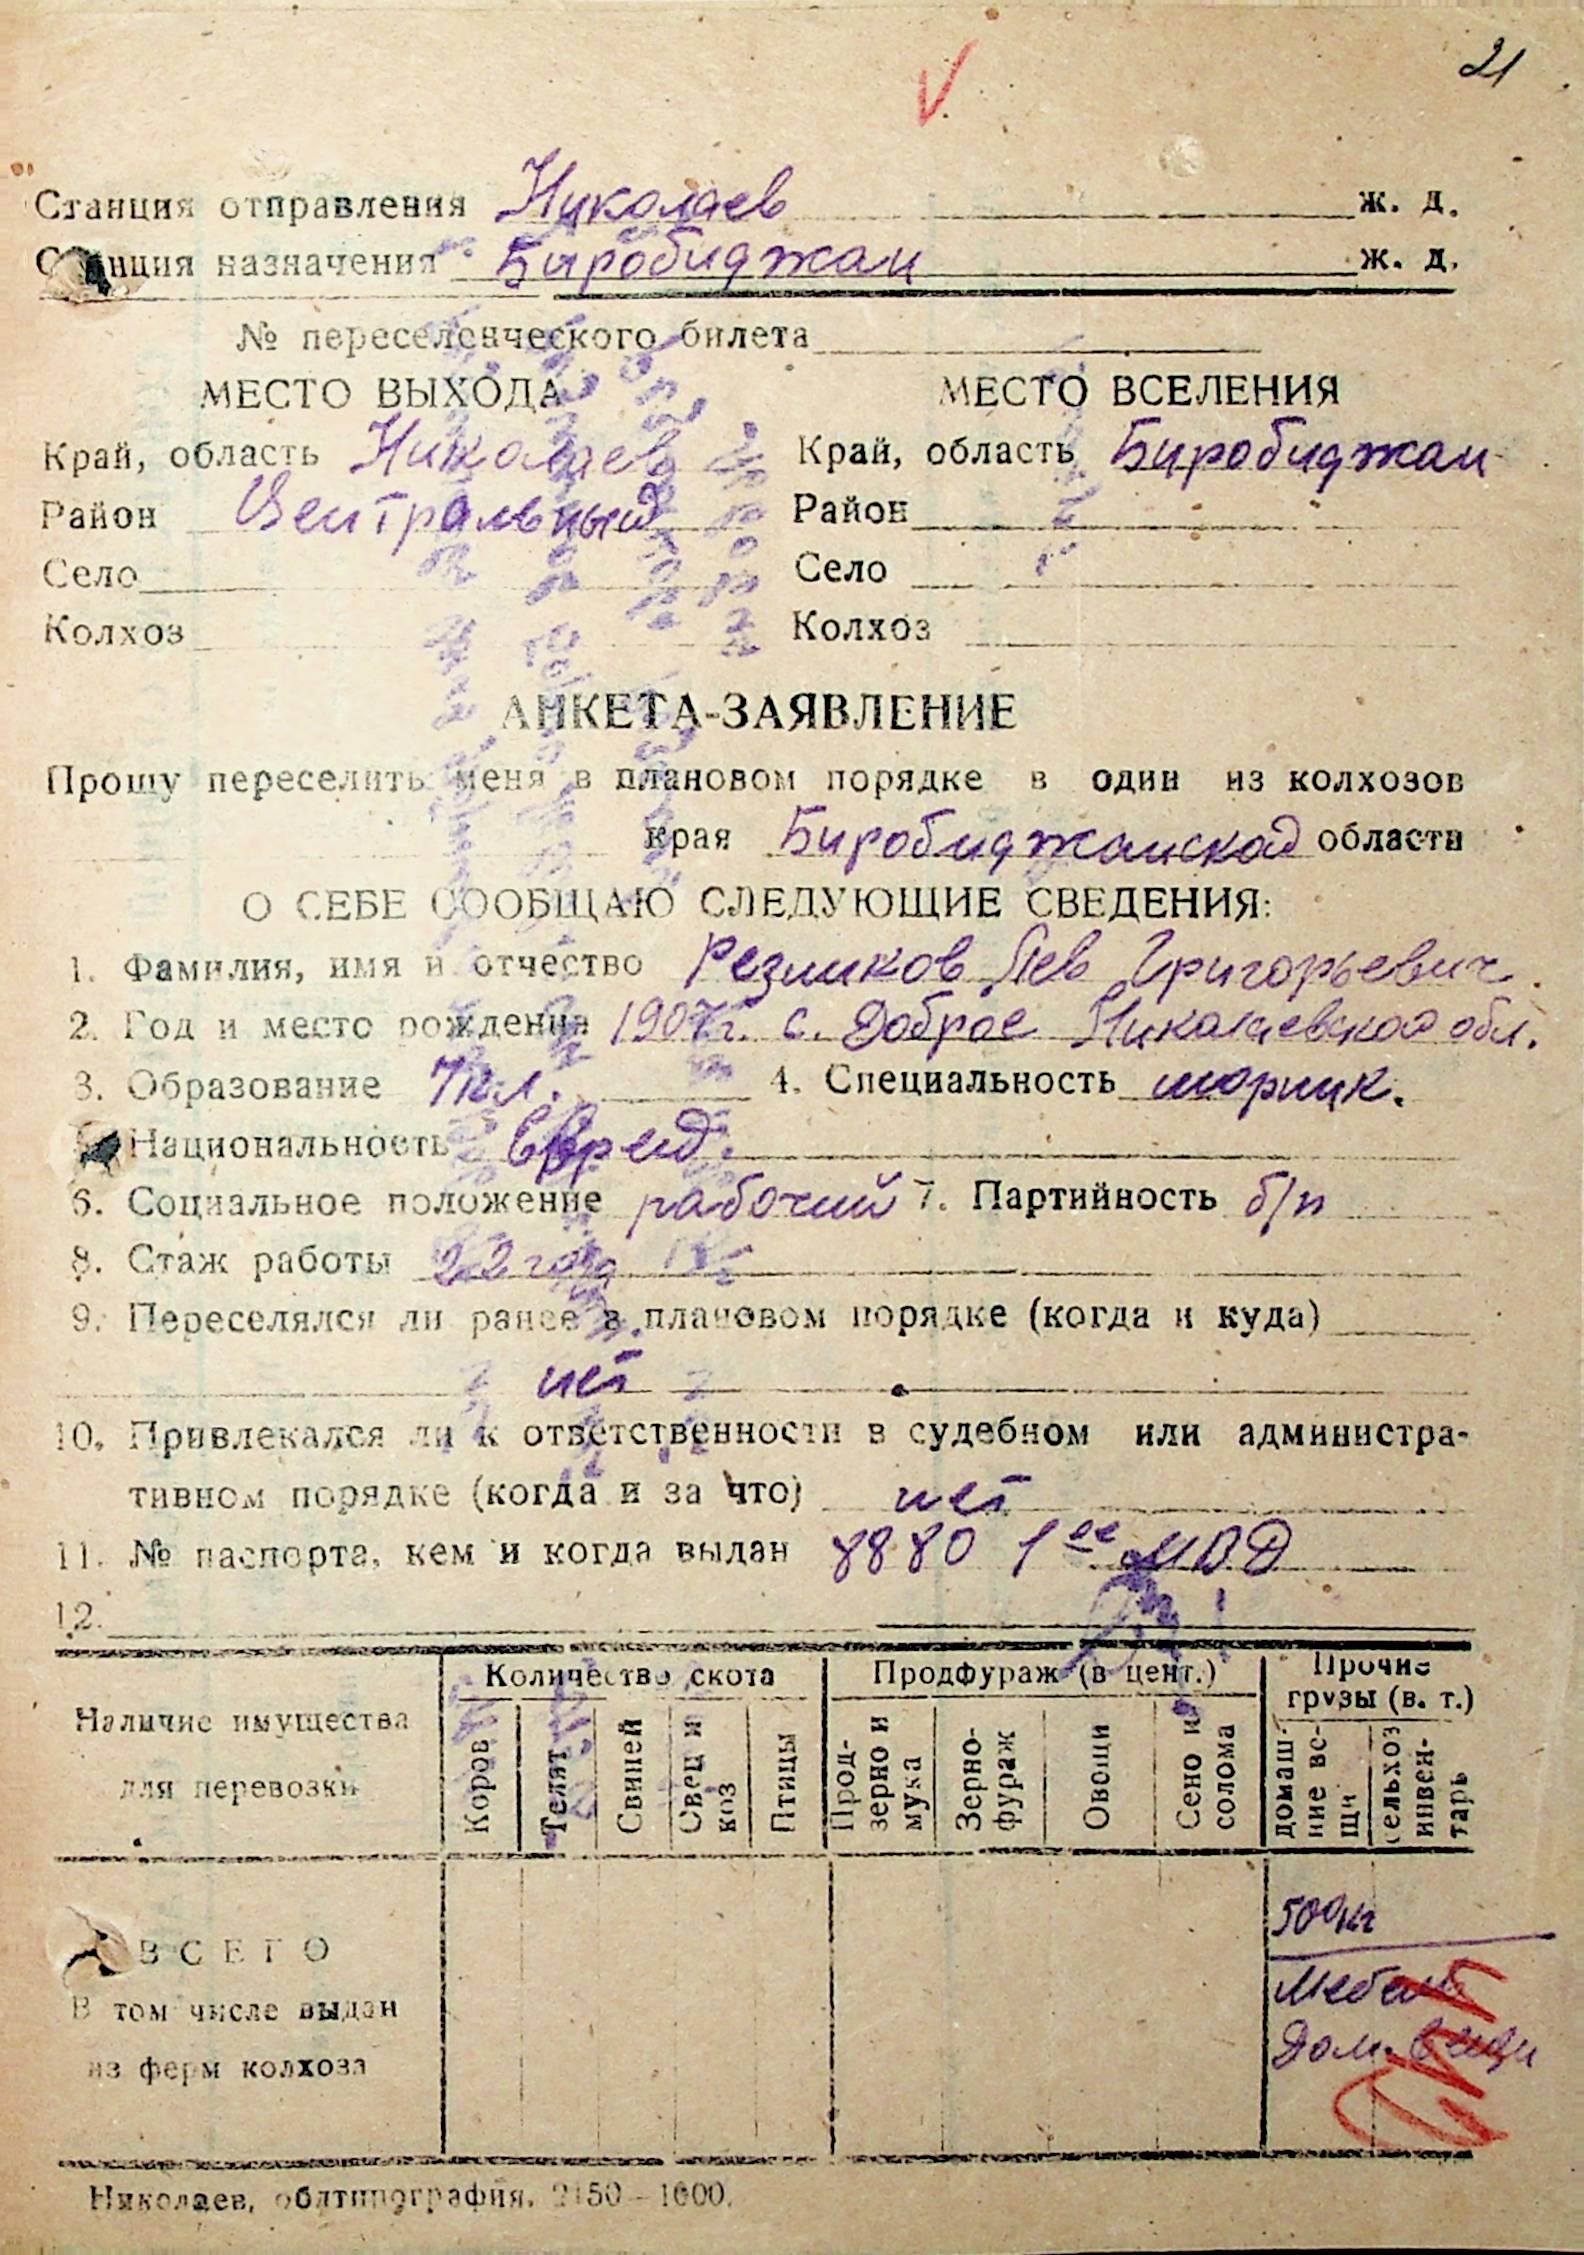 21
Станция отправления Николаев ж. д.
Станция назначения Биробиджан ж. д.
№ переселенческого билета
МЕСТО ВЫХОДА МЕСТО ВСЕЛЕНИЯ
Край, область Николаев Край, область Биробиджан
Район Центральный Район
Село Село
Колхоз Колхоз
АНКЕТА-ЗАЯВЛЕНИЕ
Прошу переселить меня в плановом порядке в один из колхозов
края Биробиджанской области
О СЕБЕ СООБЩАЮ СЛЕДУЮЩИЕ СВЕДЕНИЯ:
1. Фамилия, имя и отчество Резников Лев Григорьевич.
2. Год и место рождения 1907 г. с. Доброе Николаевской обл.
3. Образование 7 кл. 4. Специальность шорник.
Национальность Еврей.
6. Социальное положение рабочий 7. Партийность б/п
8. Стаж работы 22 года
9. Переселялся ли ранее в плановом порядке (когда и куда)
нет
10. Привлекался ли к ответственности в судебном или администра-
тивном порядке (когда и за что) нет
11. № паспорта, кем и когда выдан 8880 1ое МВД
12.
Количество скота Продфураж (в цент.) Прочие грузы (в. т.)
Наличие имущества для перевозки
Коров Телят Свиней Овец и коз Птицы Прод-зерно и мука Зерно-фураж Овощи Сено и солома домаш-ние ве-щи сельхоз инвен-тарь
ВСЕГО 500 кг
В том числе выдан Мебель
из ферм колхоза Дом. вещи
Николаев, облтипография. 2150—1000.